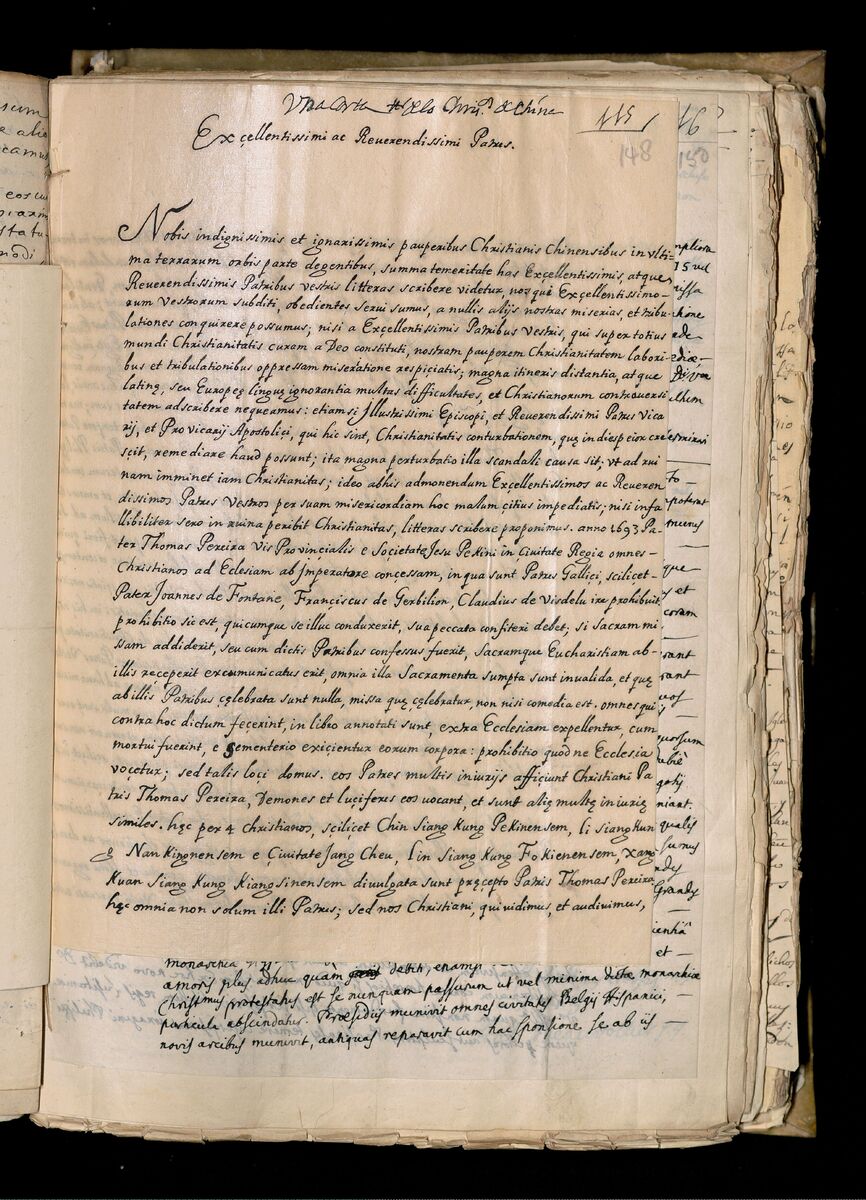 Vna Carta de los Chris.nos de China
115
148
Excellentissimi ac Reverendissimi Patres.
Nobis indignissimis et ignarissimis pauperibus Christianis Chinensibus in vlti=
ma terrarum orbis parte degentibus, summa temeritate has Excellentissimis, atque
Reuerendissimis Patribus vestris litteras scribere videtur, nos qui Excellentissimo-
rum Vestrorum subditi, obedientes serui sumus, a nullis alijs nostras miserias, et tribu-
lationes conquirere possumus; nisi a Excellentissimis Patribus Vestris, qui super totius
mundi Christianitatis curam a Deo constituti, nostram pauperem Christianitatem labori-
bus et tribulationibus oppressam miseratione respiciatis; magna itineris distantia, atque
latinę, seu Europeę linguę ignorantia multas difficultates, et Christianorum controuersi
tatem adscribere nequeamus: etiamsi Illustrissimi Episcopi, et Reuerendissimi Patres Vica
rij, et Pro Vicarij Apostolici, qui hic sint, Christianitatis conturbationem, quę in dies peior cre
scit, remediare haud possunt; ita magna perturbatio illa scandali causa sit, vt ad rui
nam imminet iam Christianitas; ideo ab his admonendum Excellentissimos ac Reueren
dissimos Patres Vestros per suam misericordiam hoc malum citius impediatis; nisi infa
llibiliter sero in ruina peribit Christianitas, litteras scribere proponimus. anno 1693 Pa-
ter Thomas Pereira Vis Provinçialis e Societate Jesu Pekini in Çiuitate Regia omnes-
Christianos ad Eclesiam ab Jmperatore conçessam, in qua sunt Patres Gallici, scilicet-
Pater Joannes de Fontane, Franciscus de Gerbilion, Claudius de Visdelu ire prohibuit
prohibitio sic est, quicumque se illuc conduxerit, sua peccata confiteri debet; si Sacram mi-
ssam addiderit, seu cum dictis Patribus confessus fuerit, Sacramque Eucharistiam ab-
illis reçeperit excumunicatus erit, omnia illa Sacramenta sumpta sunt inualida, et quę
ab illis Patribus çelebrata sunt nulla, missa quę çelebratur, non nisi comedia est. omnes qui
contra hoc dictum feçerint, in libro annotati sunt, extra Ecclesiam expellentur, cum
mortui fuerint, e Sementerio exiçientur eorum corpora: prohibitio quod ne Ecclesia
voçetur; sed talis loçi domus. eos Patres multis iniurijs affiçiunt Christiani Pa
tris Thomas Pereira, Demones et luçiferes eos uocant, et sunt alię multę iniurię
similes. hęc per 4 christianos, scilicet Chin Siang Kung Pekinensem, li Siang Kun
g Nan Kingnensem e Çiuitate Jang Cheu, Lin Siang Kung Fokienensem, Xang
Kuan Siang Kung Kiangsinensem diuulgata sunt pręcepto Patris Thomas Pereira
hęc omnia non solum illi Patres; sed nos Christiani, qui vidimus, et audivimus,
amoris plus adhuc quàm debtit,
Christmus protestatus est se nunquam passurum ut vel minima dictæ monarchiæ
particula abscindatur. Præsidiis munivit omnes civitates Belgij Hispanici,
novis arcibus munivit, antiquas reparavit cum hac sponsione se ab iis